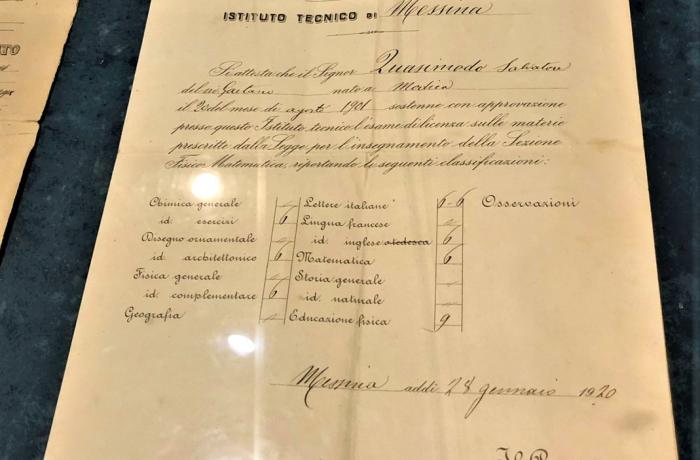 ISTITUTO TECNICO DI Messina
Si attesta che il Signor Quasimodo Salvatore
del Sig. Gaetano nato a Modica
il 20 del mese di agosto 1901 sostenne con approvazione
presso questo Istituto tecnico l'esame di licenza sulle materie
prescritte dalla Legge per l'insegnamento della Sezione
Fisico Matematica, riportando le seguenti classificazioni:
Chimica generale Lettere italiane 6-6 Osservazioni
id. esercizi 6 Lingua francese
Disegno ornamentale id. inglese o tedesca 6
id. architettonico 6 Matematica 6
Fisica generale Storia generale
id. complementare 6 id. naturale
Geografia Educazione fisica 9
Messina addì 28 gennaio 1920